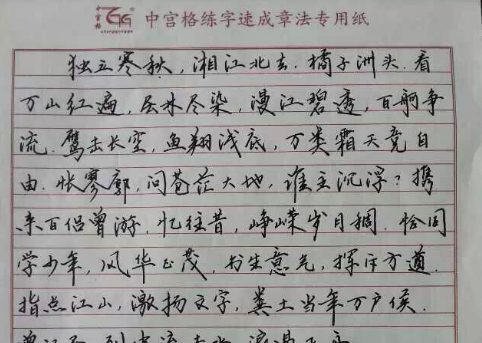 中宫格练字速成章法专用纸
独立寒秋，湘江北去．橘子洲头．看
万山红遍，层林尽染，漫江碧透，百舸争
流．鹰击长空，鱼翔浅底，万类霜天竞自
由．怅寥廓，问苍茫大地，谁主沉浮？携
来百侣曾游．忆往昔，峥嵘岁月稠．恰同
学少年，风华正茂，书生意气，挥斥方遒．
指点江山，激扬文字，粪土当年万户侯．